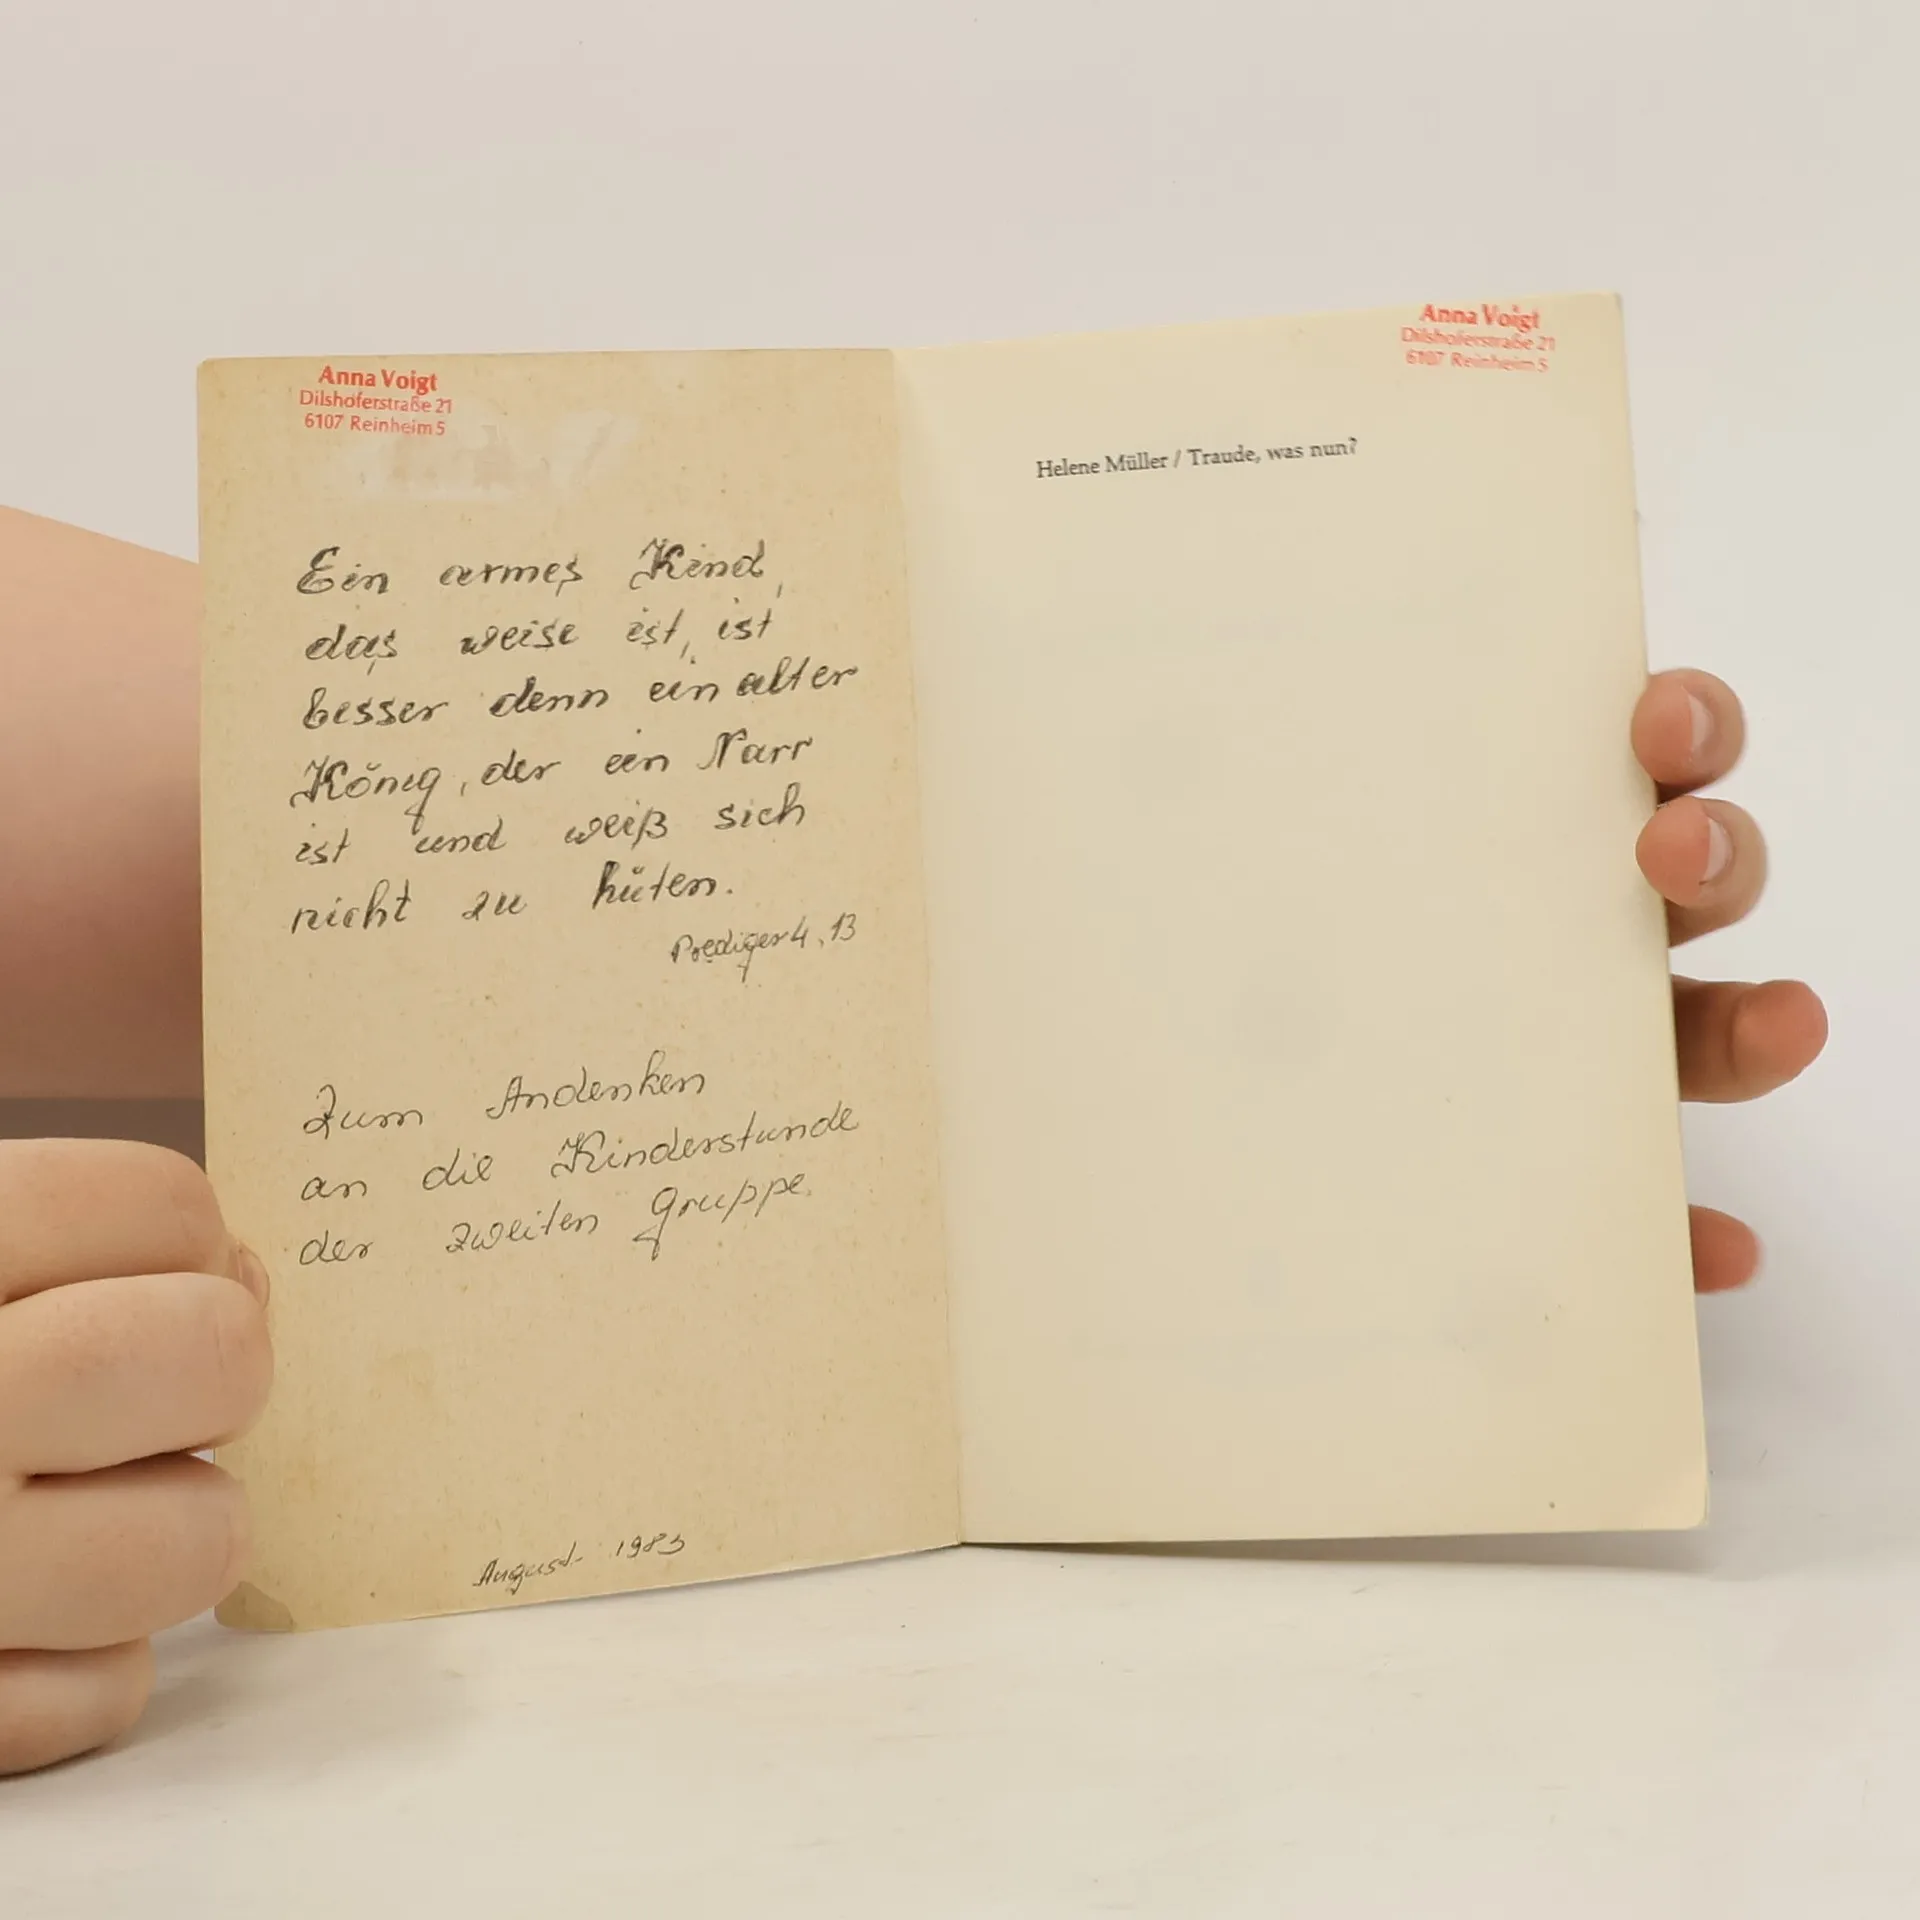 Anna Voigt
Dilshoferstraße 21
6107 Reinheim 5
Ein armes Kind,
das weise ist, ist
besser denn ein alter
König, der ein Narr
ist und weiß sich
nicht zu hüten.
Prediger 4, 13
Zum Andenken
an die Kinderstunde
der zweiten Gruppe.
August 1983
Anna Voigt
Dilshoferstraße 21
6107 Reinheim 5
Helene Müller / Traude, was nun?